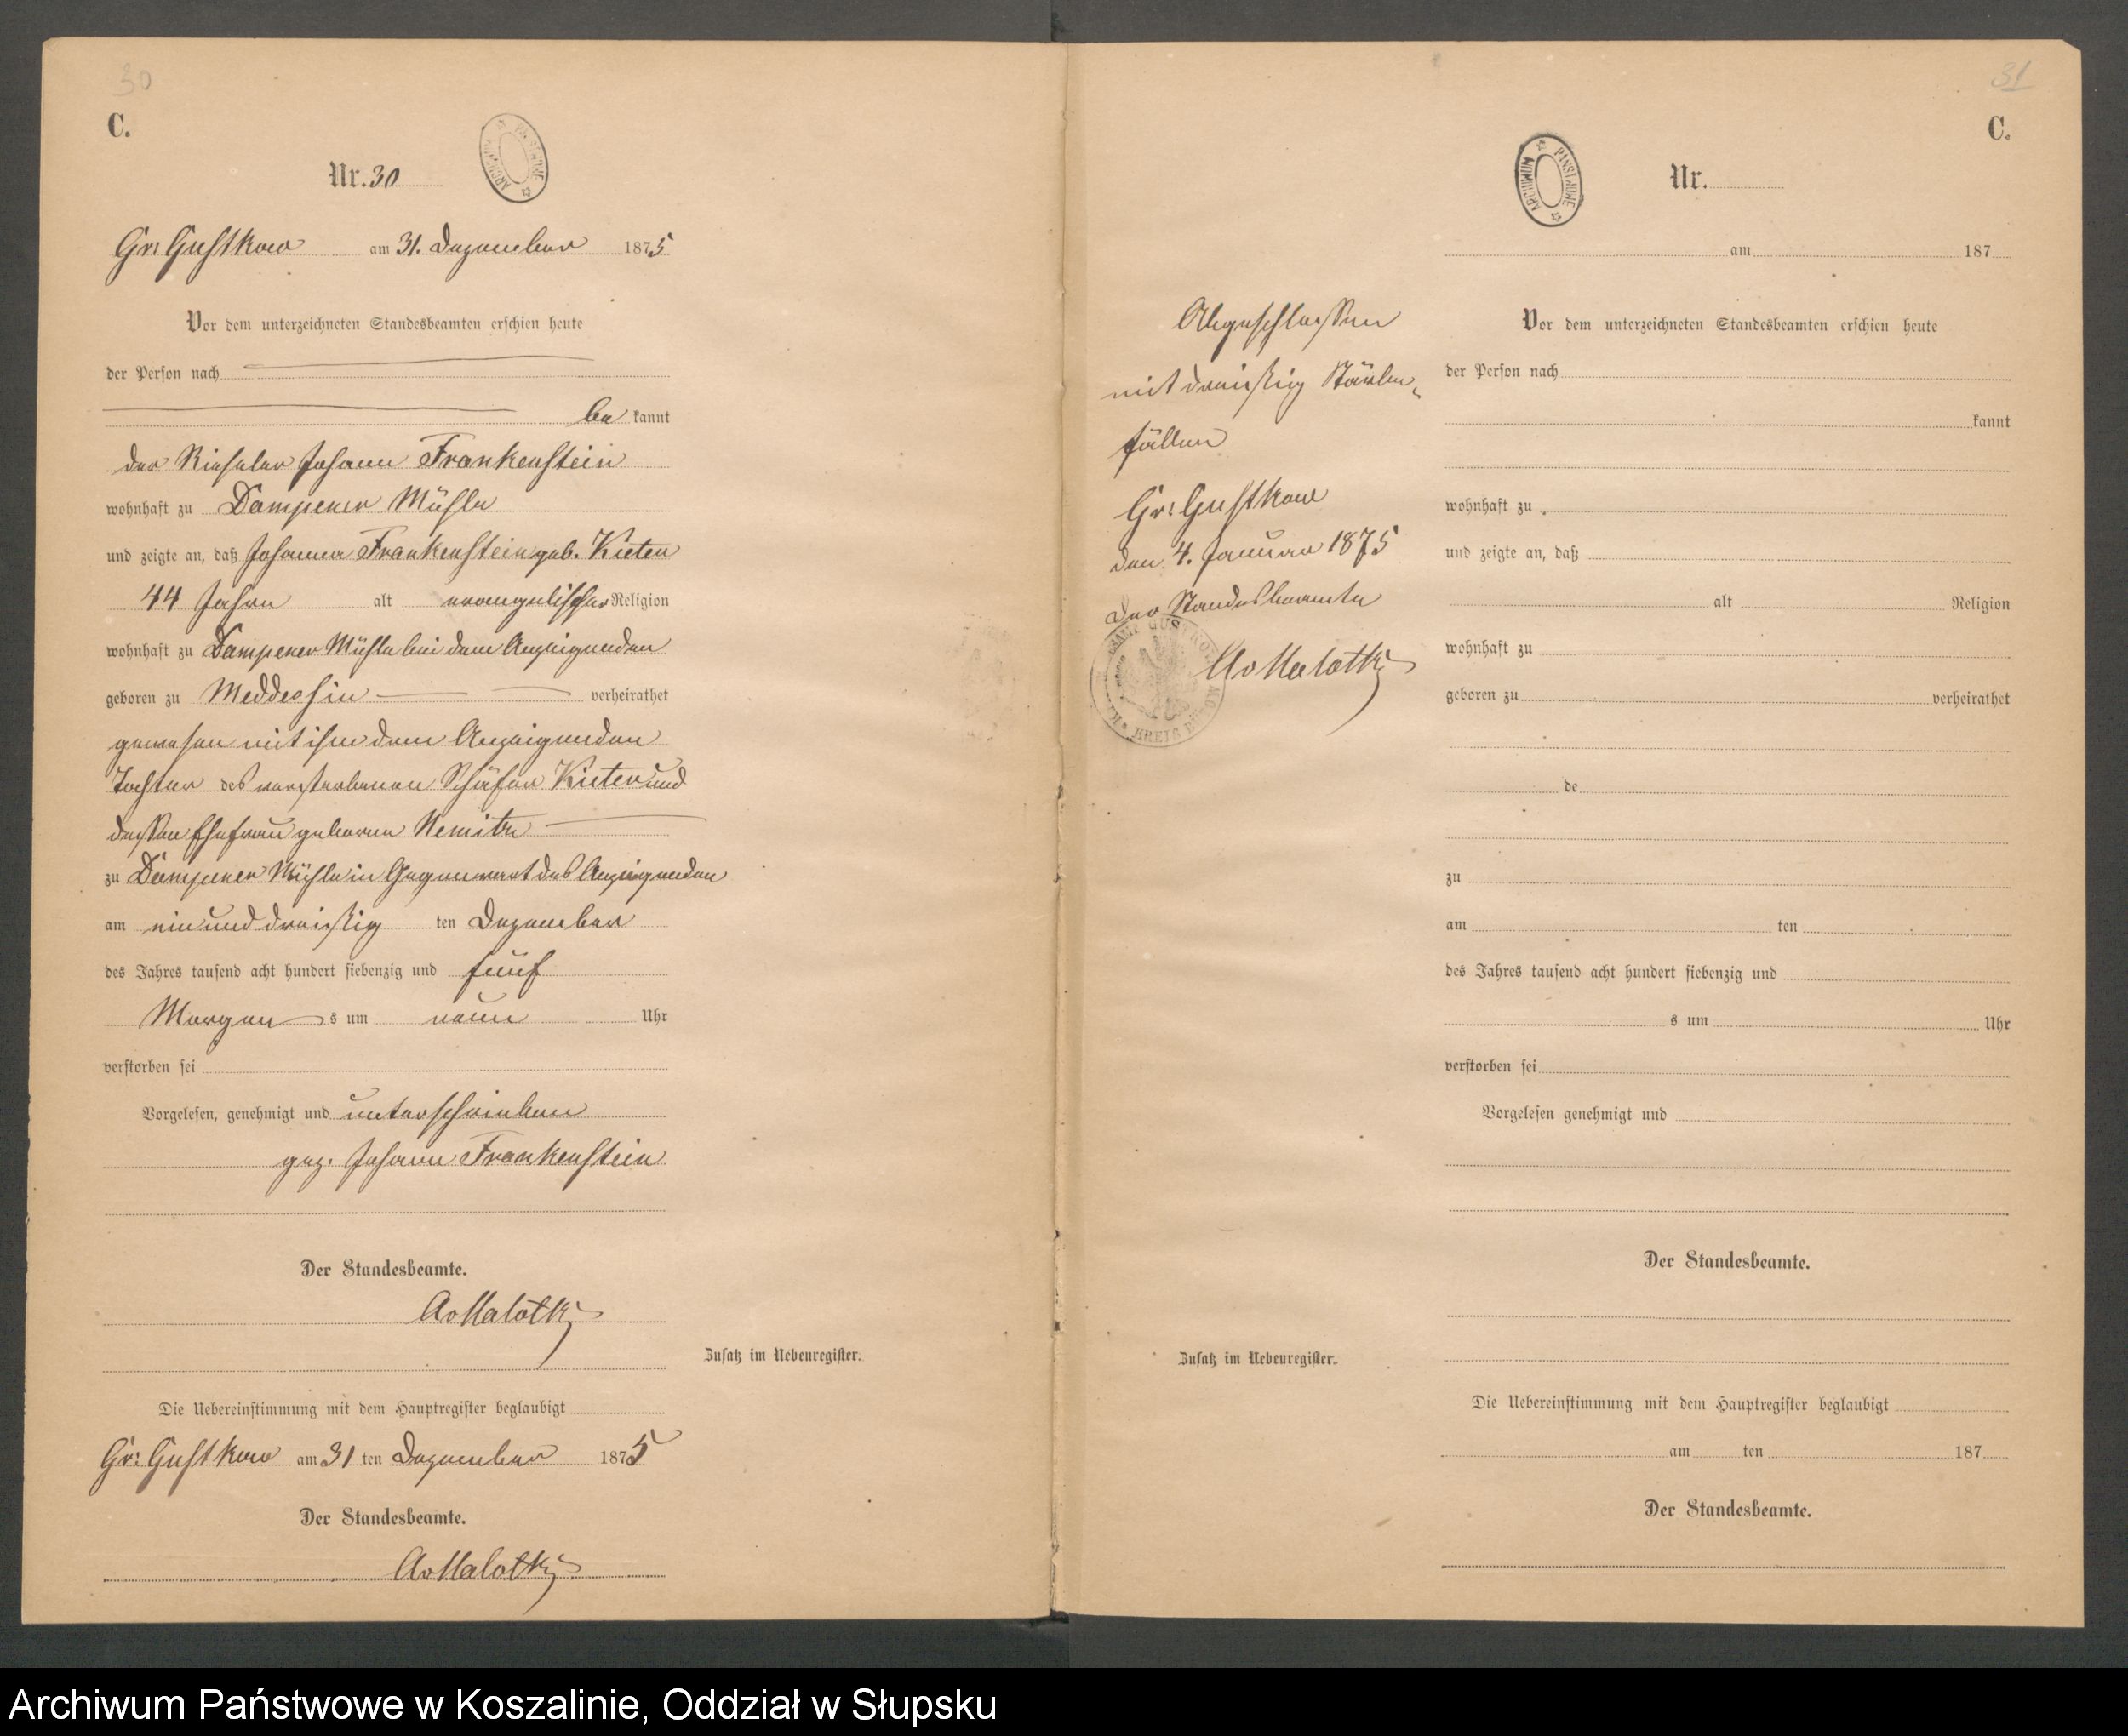 30
C.
Nr. 30
Gr: Gustkow am 31. Dezember 1875
Vor dem unterzeichneten Standesbeamten erschien heute
der Person nach
be kannt
der Rieseler Johann Frankenstein
wohnhaft zu Dampener Mühle
und zeigte an, daß Johanna Frankenstein geb. Kieten
44 Jahre alt evangelischer Religion
wohnhaft zu Dampener Mühle bei dem Anzeigenden
geboren zu Meddersin verheirathet
gewesen mit ihm dem Anzeigenden
Tochter des verstorbenen Schäfer Kieten und
dessen Ehefrau geborne Nemitz
zu Dampener Mühle in Gegenwart des Anzeigenden
am ein und dreißig ten Dezember
des Jahres tausend acht hundert siebenzig und fünf
Morgen s um neun Uhr
verstorben sei
Vorgelesen, genehmigt und unterschrieben
gez. Johann Frankenstein
Der Standesbeamte.
AvMalotky
Zusatz im Nebenregister.
Die Uebereinstimmung mit dem Hauptregister beglaubigt
Gr: Gustkow am 31 ten Dezember 1875
Der Standesbeamte.
AvMalotky
31
C.
ARCHIWUM PAŃSTWOWE
Nr.
am 187
Abgeschlossen
mit dreißig Sterbe-
fällen
Gr: Gustkow
den 4. Januar 1875
Der Standesbeamte
AvMalotky
Vor dem unterzeichneten Standesbeamten erschien heute
der Person nach
kannt
wohnhaft zu
und zeigte an, daß
alt Religion
wohnhaft zu
geboren zu verheirathet
de
zu
am ten
des Jahres tausend acht hundert siebenzig und
s um Uhr
verstorben sei
Vorgelesen genehmigt und
Der Standesbeamte.
Zusatz im Nebenregister.
Die Uebereinstimmung mit dem Hauptregister beglaubigt
am ten 187
Der Standesbeamte.
Archiwum Państwowe w Koszalinie, Oddział w Słupsku